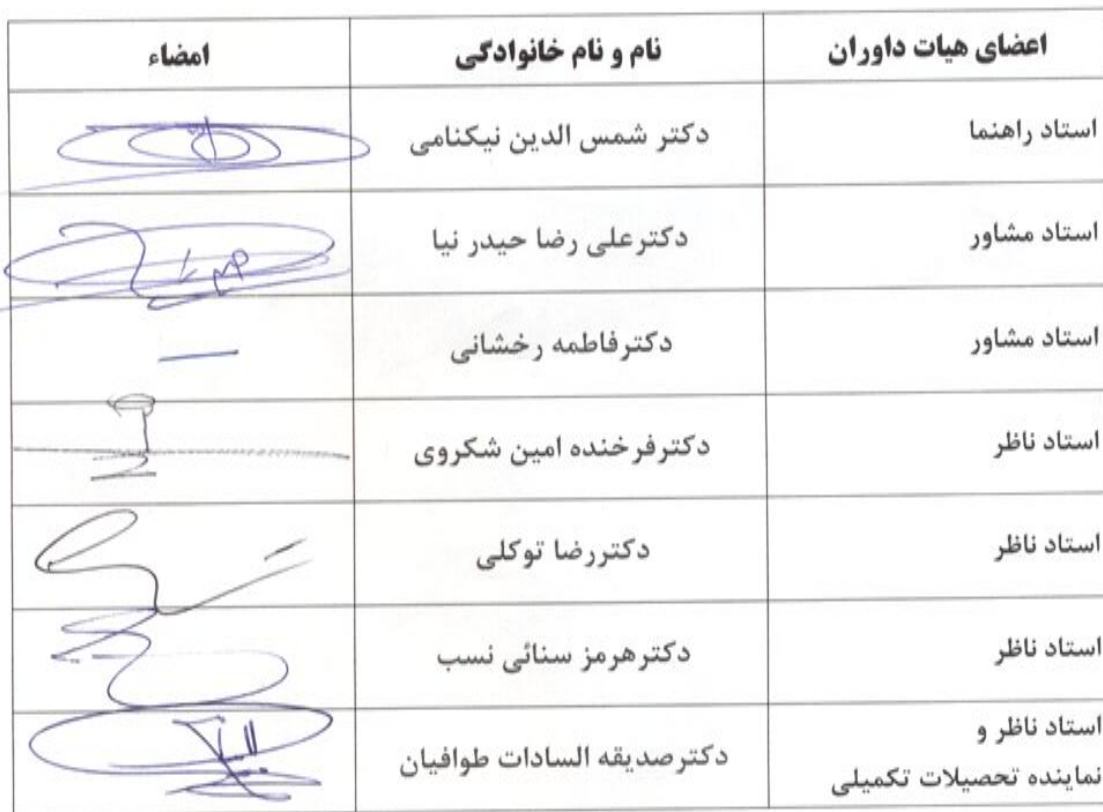 اعضای هیات داوران	نام و نام خانوادگی	امضاء
استاد راهنما	دکتر شمس الدین نیکنامی
استاد مشاور	دکترعلی رضا حیدر نیا
استاد مشاور	دکترفاطمه رخشانی
استاد ناظر	دکترفرخنده امین شکروی
استاد ناظر	دکتررضا توکلی
استاد ناظر	دکترهرمز سنائی نسب
استاد ناظر و
نماینده تحصیلات تکمیلی	دکترصدیقه السادات طوافیان